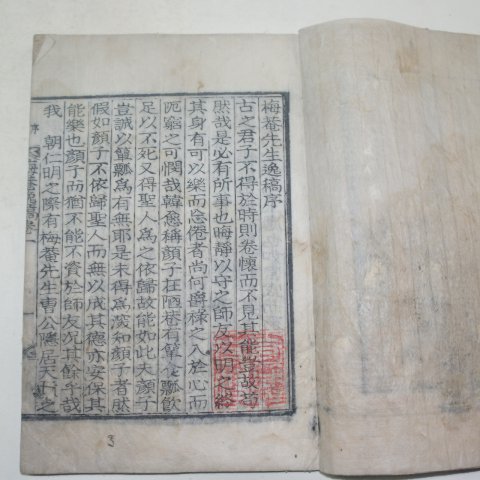 梅菴先生逸稿序
古之君子不得於時則卷懷而不見其能豈故苟
然哉是必有所事也晦靜以守之師友以明之
其身有可以樂而忘倦者尚何爵祿之入於心而
阨窮之可憫哉韓愈稱顏子在陋巷有簞食瓢飮
足以不死又得聖人爲之依歸故能如此夫顏子
豈誠以簞瓢爲有無耶是未得爲深知顏子者然
假如顏子不依歸聖人而無以成其德亦安保其
能樂也顏子而猶不能不資於師友况其餘乎哉
我 朝仁明之際有梅菴先生曺公隱居天
序
3